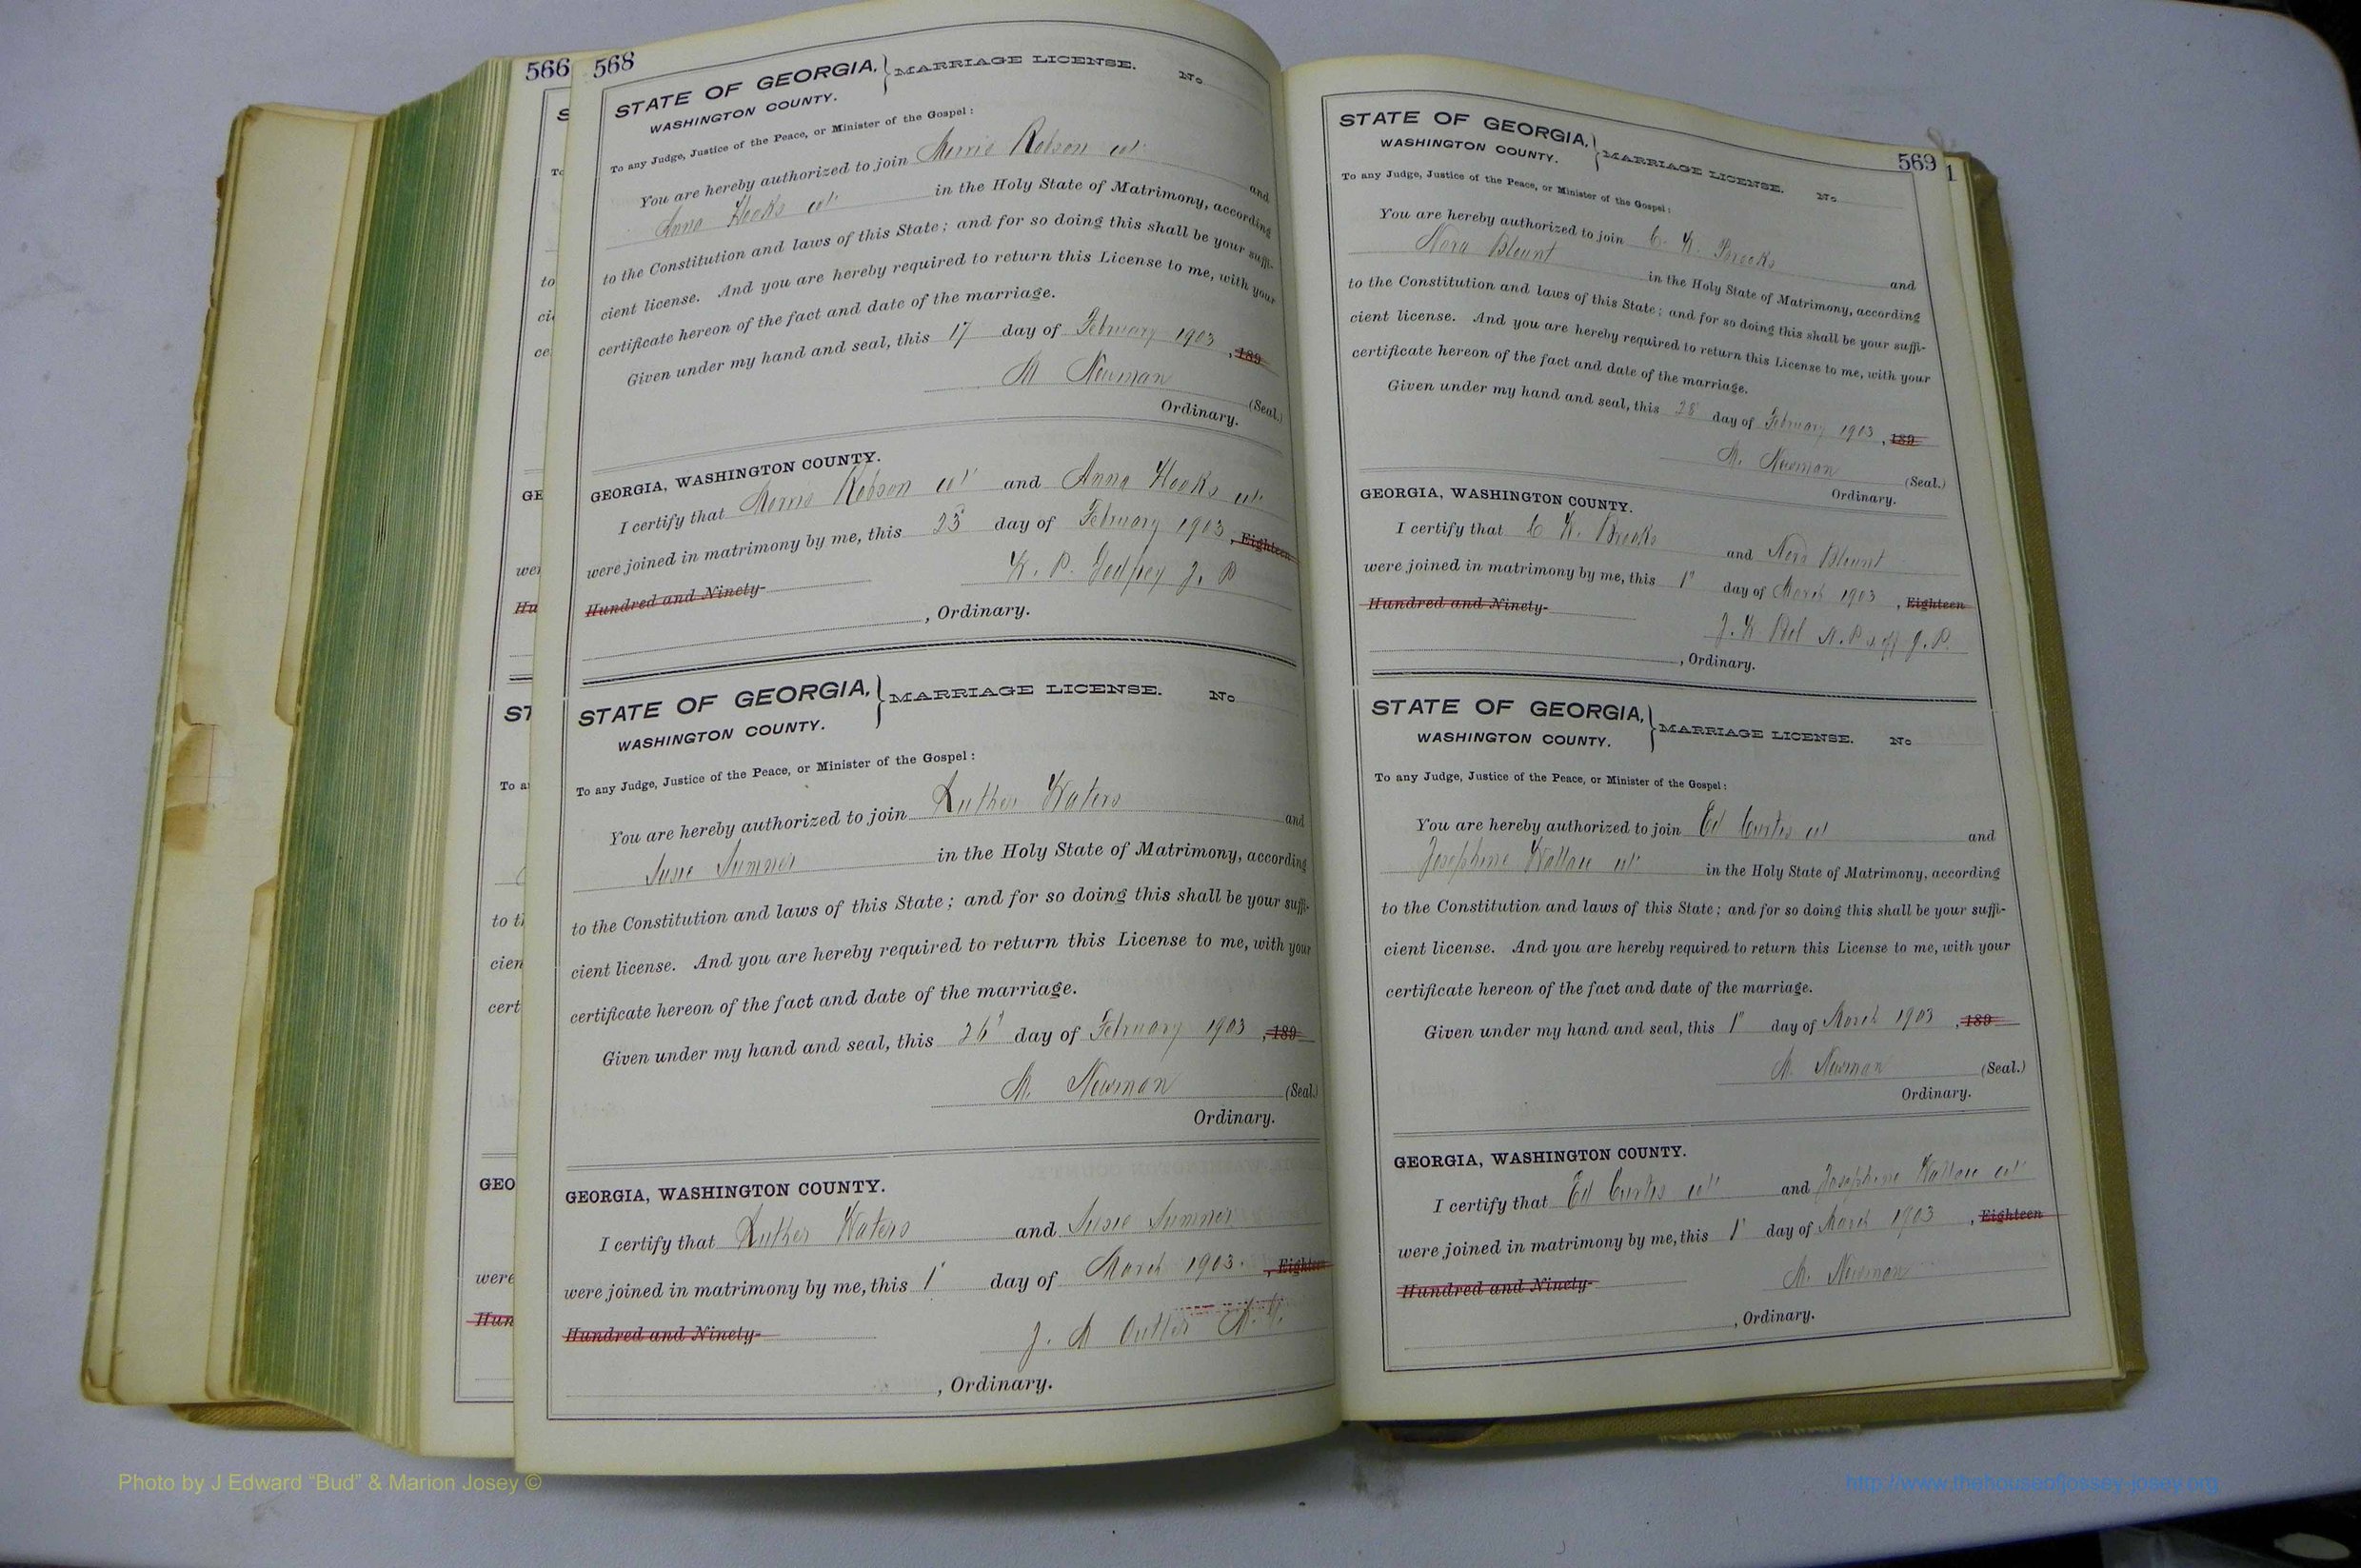 566
568
STATE OF GEORGIA, } MARRIAGE LICENSE. No
WASHINGTON COUNTY.
To any Judge, Justice of the Peace, or Minister of the Gospel:
You are hereby authorized to join Morris Robson col' and
Anna Hooks col' in the Holy State of Matrimony, according
to the Constitution and laws of this State; and for so doing this shall be your suffi-
cient license. And you are hereby required to return this License to me, with your
certificate hereon of the fact and date of the marriage.
Given under my hand and seal, this 17 day of February 1903, 189
M Newman (Seal.)
Ordinary.
GEORGIA, WASHINGTON COUNTY.
I certify that Morris Robson col' and Anna Hooks col'
were joined in matrimony by me, this day of February 1903, Eighteen
Hundred and Ninety- K. P. Godfrey J. P
, Ordinary.
STATE OF GEORGIA, } MARRIAGE LICENSE. No
WASHINGTON COUNTY.
To any Judge, Justice of the Peace, or Minister of the Gospel:
You are hereby authorized to join Luther Waters and
Susie Sumner in the Holy State of Matrimony, according
to the Constitution and laws of this State; and for so doing this shall be your suffi-
cient license. And you are hereby required to return this License to me, with your
certificate hereon of the fact and date of the marriage.
Given under my hand and seal, this 26" day of February 1903, 189
M. Newman (Seal.)
Ordinary.
GEORGIA, WASHINGTON COUNTY.
I certify that Luther Waters and Susie Sumner
were joined in matrimony by me, this 1' day of March 1903. , Eighteen
Hundred and Ninety- J. M Outler
, Ordinary.
569
1
STATE OF GEORGIA, } MARRIAGE LICENSE. No
WASHINGTON COUNTY.
To any Judge, Justice of the Peace, or Minister of the Gospel:
You are hereby authorized to join C. K. Brooks and
Nora Blount in the Holy State of Matrimony, according
to the Constitution and laws of this State; and for so doing this shall be your suffi-
cient license. And you are hereby required to return this License to me, with your
certificate hereon of the fact and date of the marriage.
Given under my hand and seal, this 28 day of February 1903, 189
M. Newman (Seal.)
Ordinary.
GEORGIA, WASHINGTON COUNTY.
I certify that C K. Brooks and Nora Blount
were joined in matrimony by me, this 1" day of March 1903, Eighteen
Hundred and Ninety- J. K N.P. J.P.
, Ordinary.
STATE OF GEORGIA, } MARRIAGE LICENSE. No
WASHINGTON COUNTY.
To any Judge, Justice of the Peace, or Minister of the Gospel:
You are hereby authorized to join Ed Curtis col' and
Josephine Wallace col' in the Holy State of Matrimony, according
to the Constitution and laws of this State; and for so doing this shall be your suffi-
cient license. And you are hereby required to return this License to me, with your
certificate hereon of the fact and date of the marriage.
Given under my hand and seal, this 1" day of March 1903, 189
M. Newman (Seal.)
Ordinary.
GEORGIA, WASHINGTON COUNTY.
I certify that Ed Curtis col' and Josephine Wallace col'
were joined in matrimony by me, this 1' day of March 1903, Eighteen
Hundred and Ninety- M. Newman
, Ordinary.
Photo by J Edward "Bud" & Marion Josey ©
http://www.thehouseofjossey-josey.org